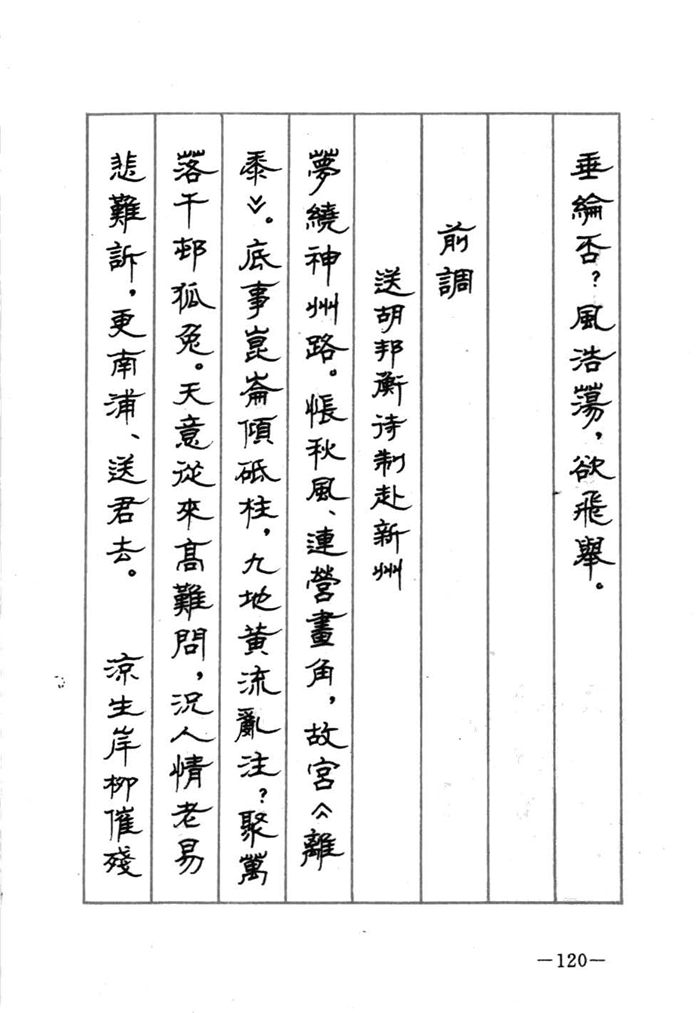 垂綸否?風浩蕩,欲飛舉。
前調
送胡邦衡待制赴新州
夢繞神州路。悵秋風、連營畫角,故宮《離
黍》。底事崑崙傾砥柱,九地黃流亂注?聚萬
落千邨狐兔。天意從來高難問,況人情老易
悲難訴,更南浦、送君去。 涼生岸柳催殘
—120—